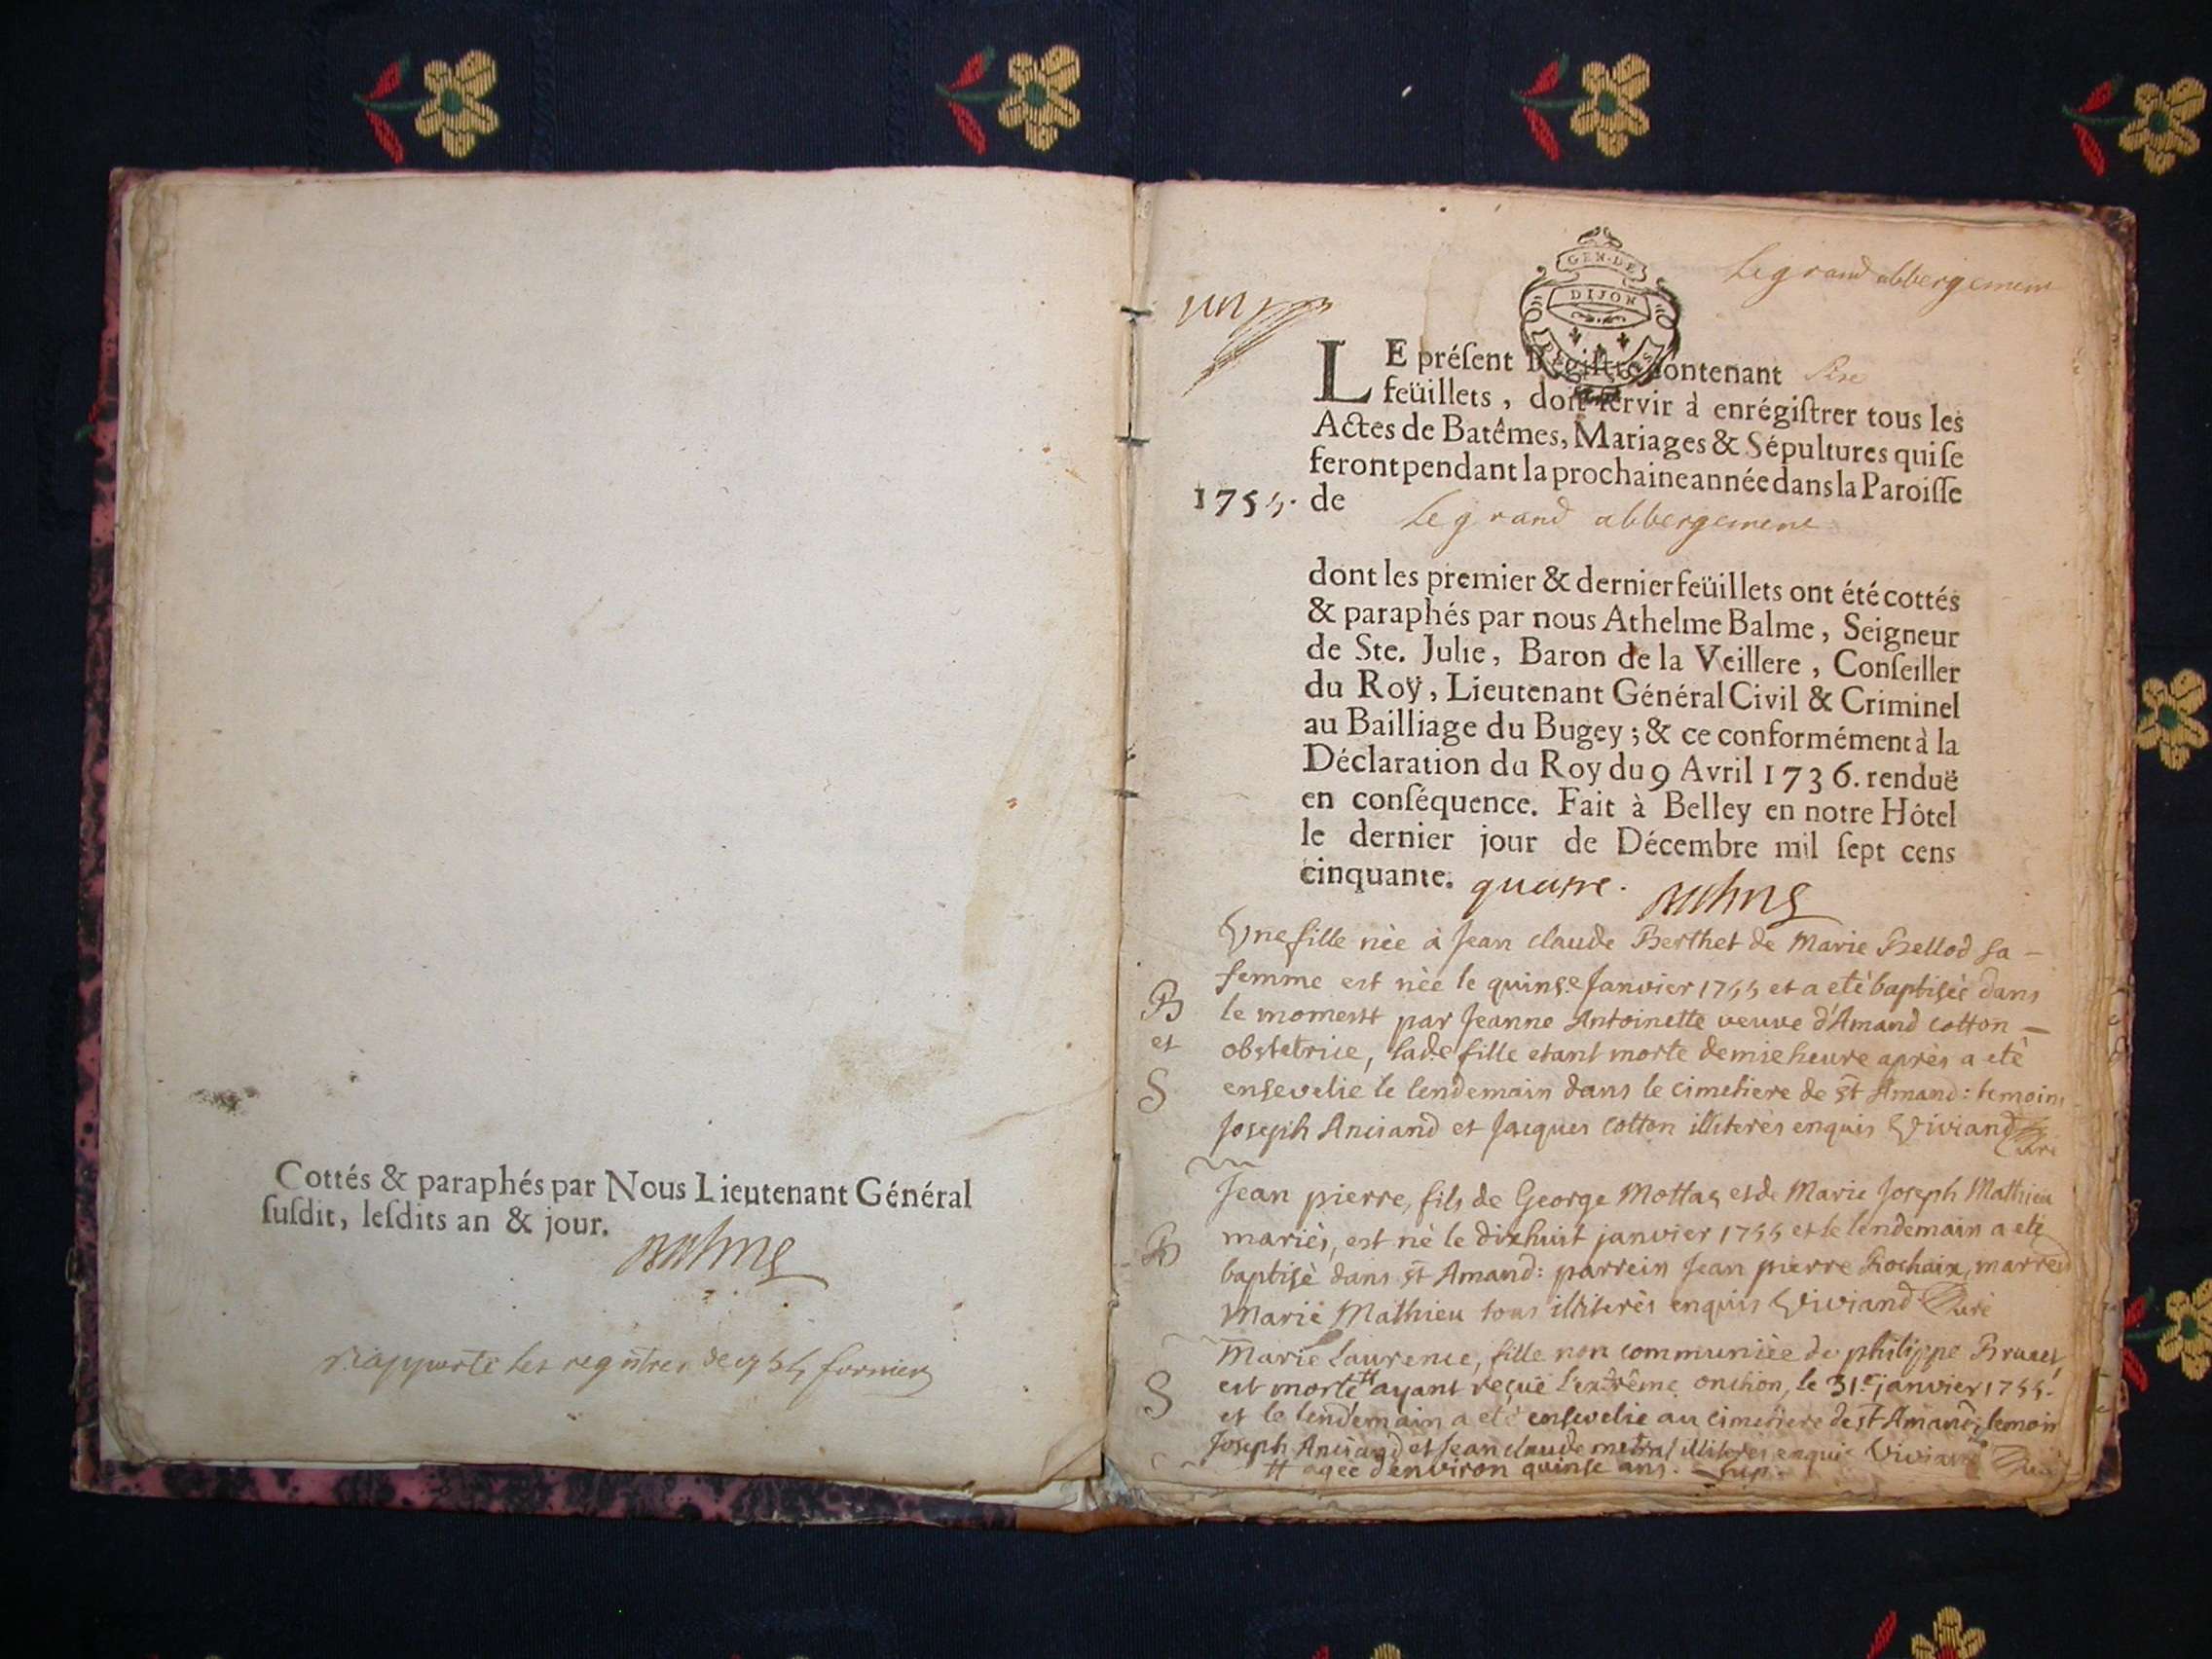 Cottés & paraphés par Nous Lieutenant Général
ſuſdit, leſdits an & jour.
les registres de
Le grand abbergement
GEN·DE
DIJON
LE préſent Régiſtre contenant
feüillets, doit ſervir à enrégiſtrer tous les
Actes de Batêmes, Mariages & Sépultures qui ſe
feront pendant la prochaine année dans la Paroiſſe
1755. de
Le grand abbergement
dont les premier & dernier feüillets ont été cottés
& paraphés par nous Athelme Balme, Seigneur
de Ste. Julie, Baron de la Veillere, Conſeiller
du Roÿ, Lieutenant Général Civil & Criminel
au Bailliage du Bugey; & ce conformément à la
Déclaration du Roy du 9 Avril 1736. renduë
en conſéquence. Fait à Belley en notre Hôtel
le dernier jour de Décembre mil ſept cens
cinquante. quatre.
Une fille née à Jean claude Berthet de Marie Bellod sa
femme est nèe le quinse Janvier 1755 et a etè baptisèe dans
B
le moment par Jeanne Antoinette veuve d'Amand cotton
et
obstetrice, lade fille etant morte demie heure après a etè
S
ensevelie le lendemain dans le cimetiere de st Amand: temoins
Joseph et Jacques cotton illiterès enquis Viviand Curè
Jean pierre, fils de George Mottas et de Marie Joseph Mathieu
B
mariès, est nè le dixhuit janvier 1755 et le lendemain a etè
baptisè dans st Amand: parrein Jean pierre Rochaix, marreine
Marie Mathieu tous illiterès enquis Viviand Curè
Marie Laurence, fille non communièe de philippe
S
est morte # ayant reçuë l'extrême onction, le 31e janvier 1755.
et le lendemain a etè ensevelie au cimetiere de st Amand, temoin
Joseph et Jean claude metral illiterès enquis Viviand Curè
# agèe d'environ quinse ans.